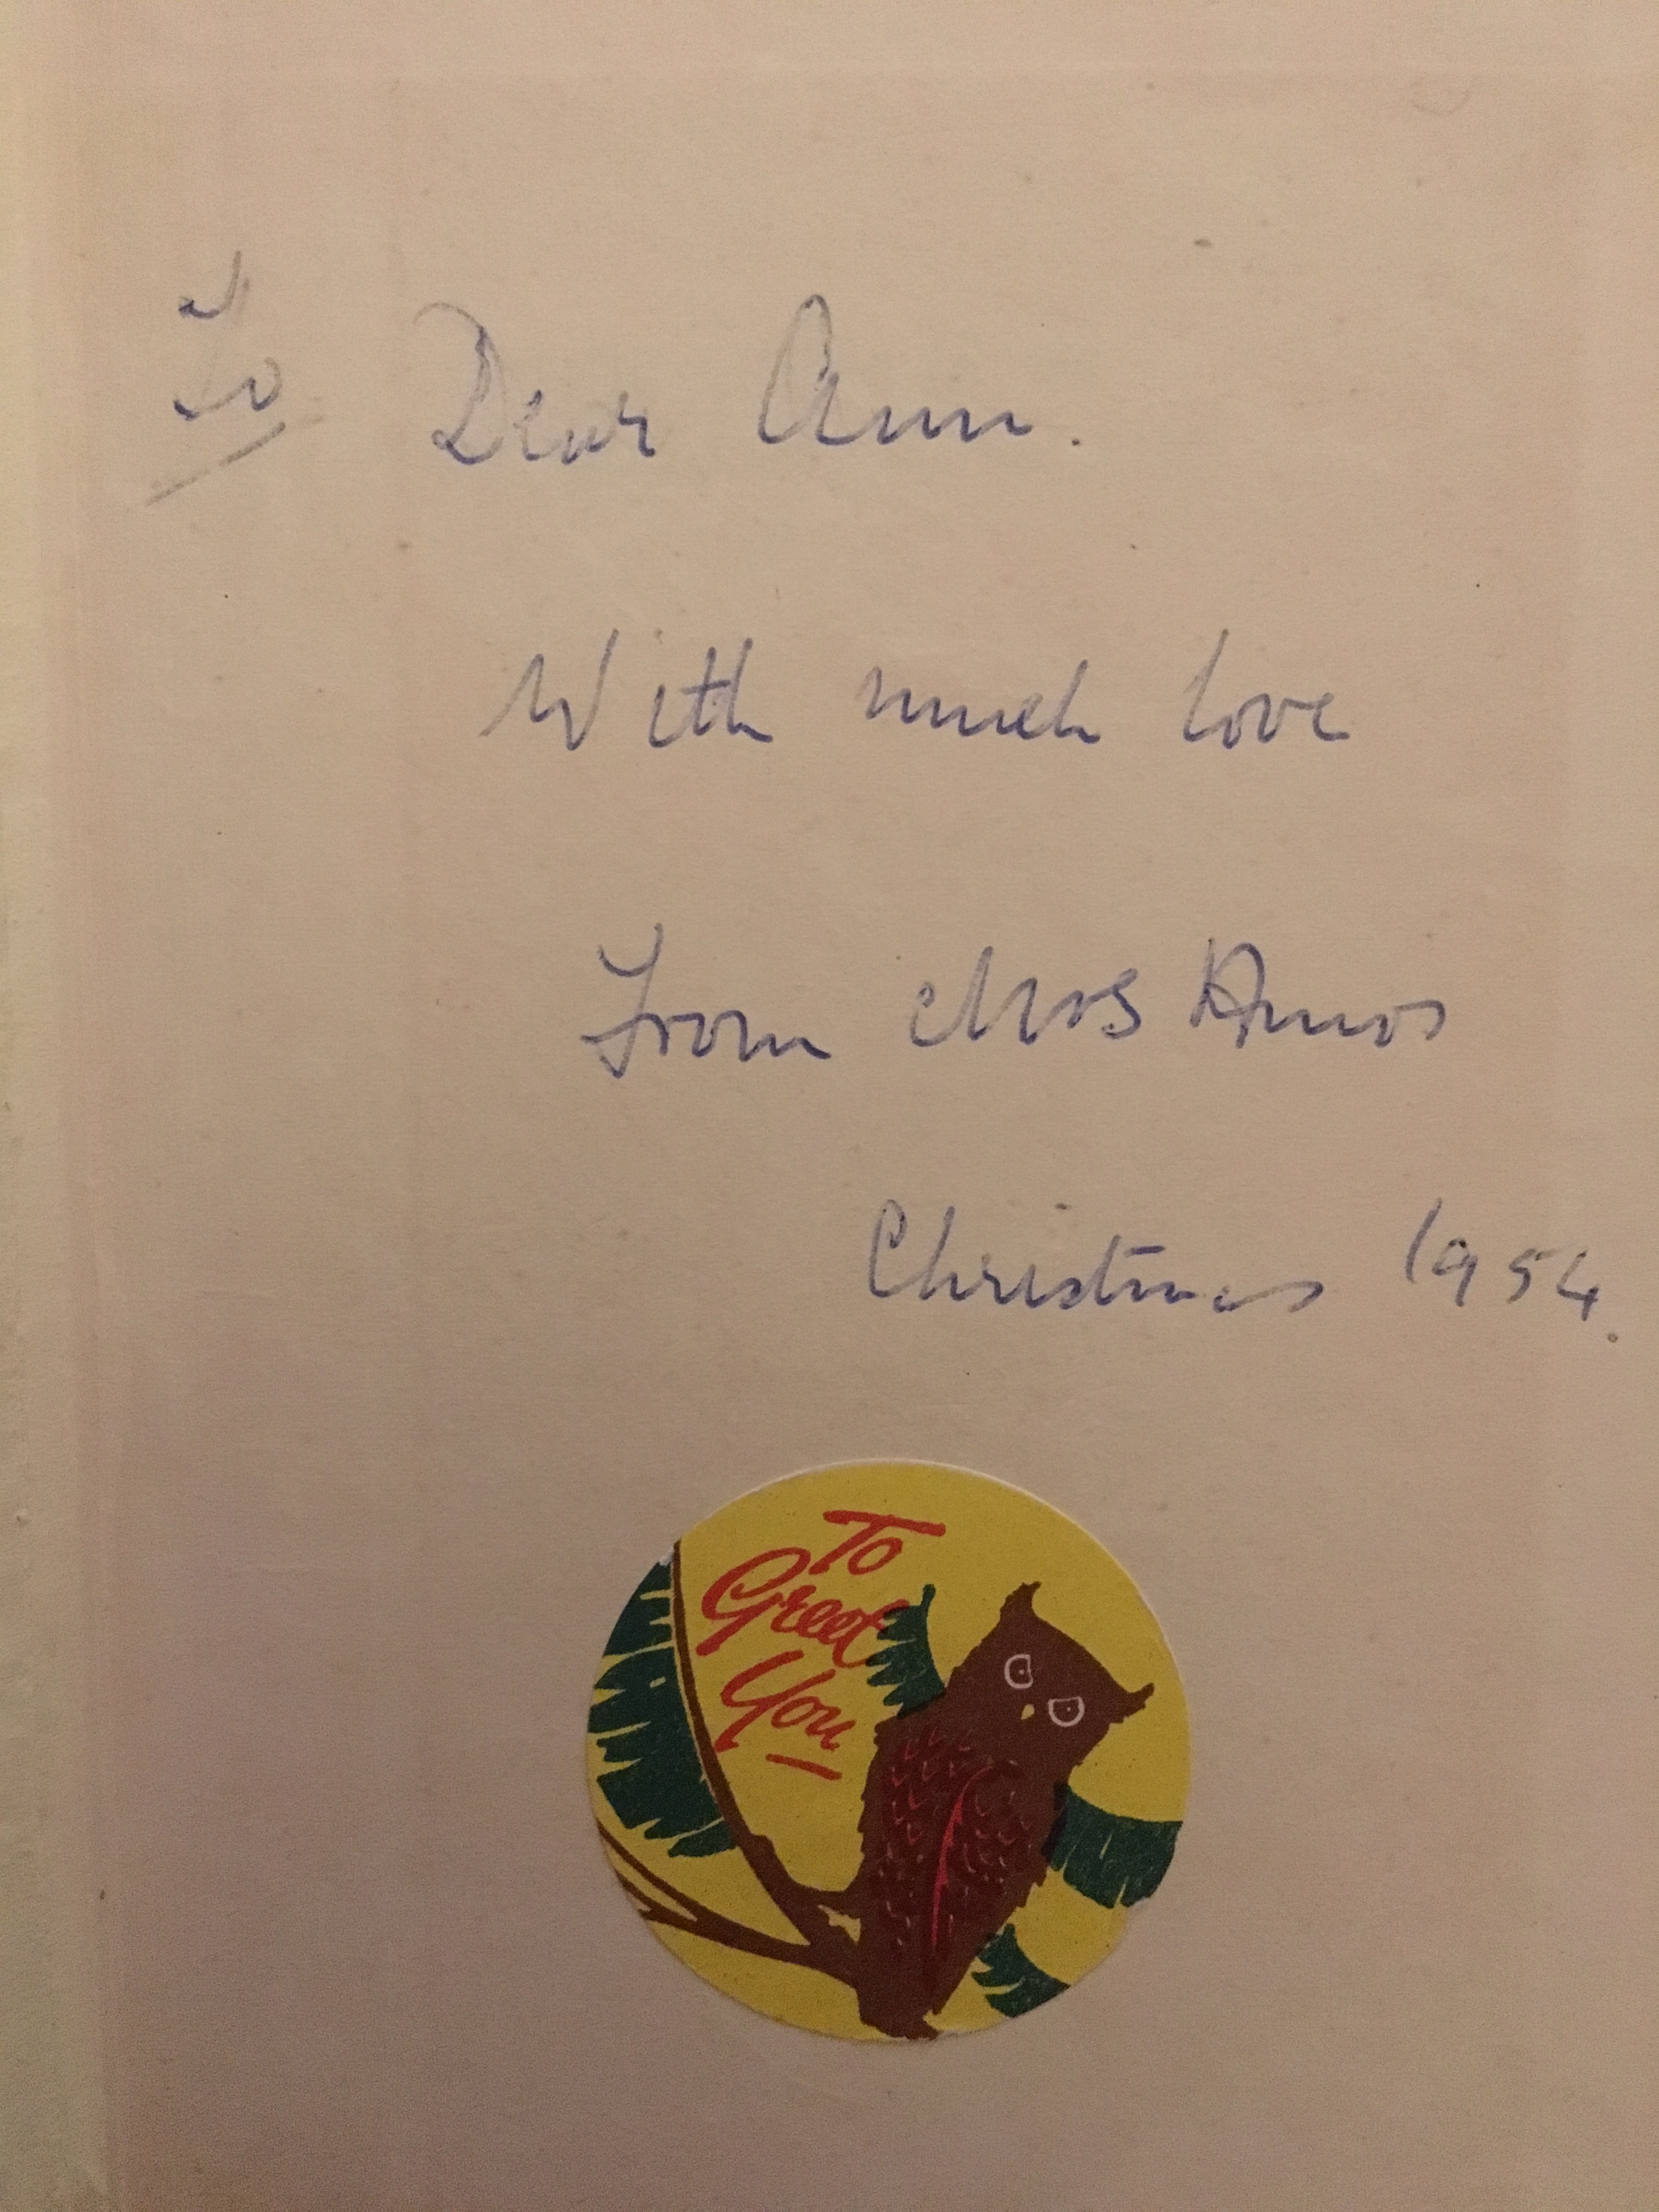 To Dear Ann.
With much love
From Mrs Amos
Christmas 1954.
To
Greet
You